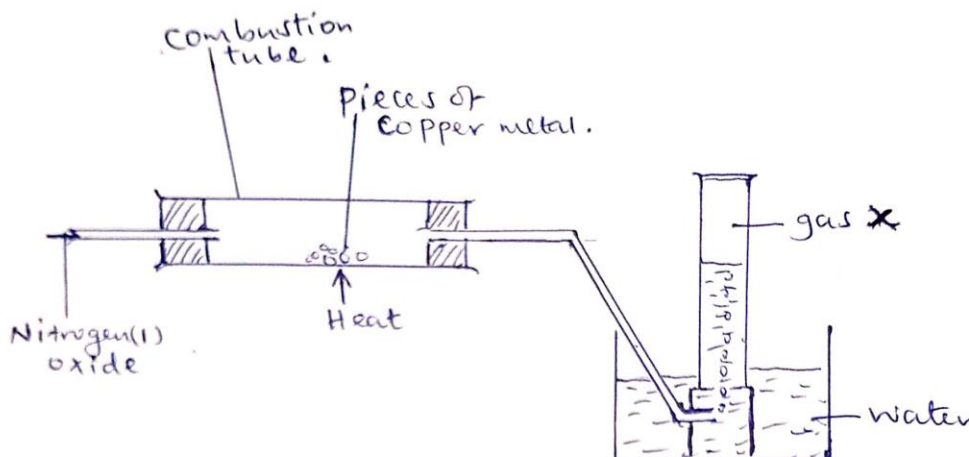 Combustion
tube.
Pieces of
copper metal.
gas X
Heat
Nitrogen(I)
oxide
water